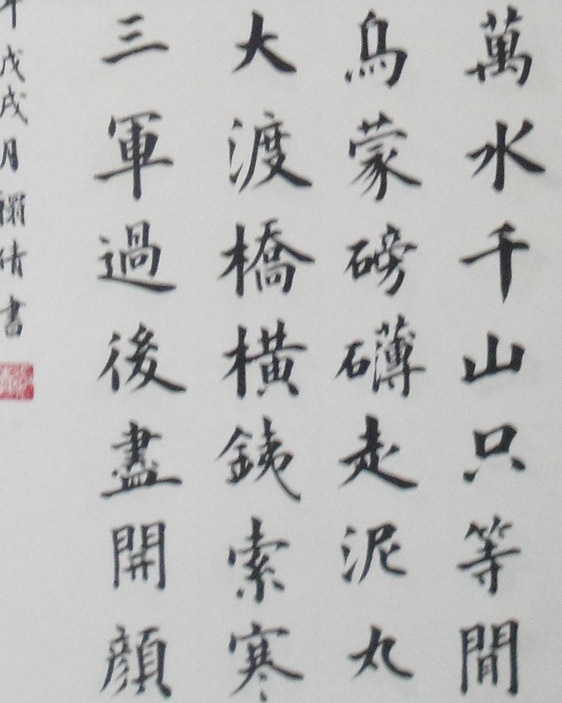 萬水千山只等閒
烏蒙磅礴走泥丸
大渡橋橫銕索寒
三軍過後盡開顏
戊戌月 倩書